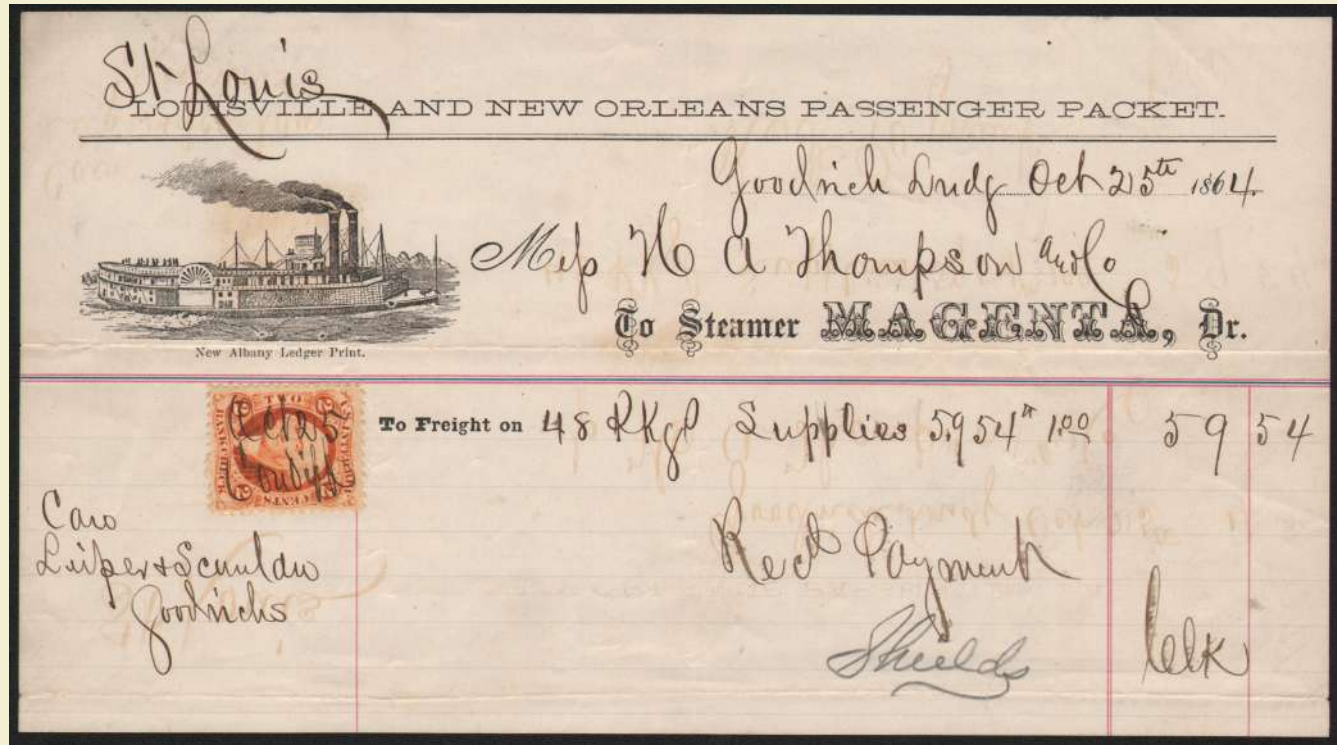 St Louis
LOUISVILLE AND NEW ORLEANS PASSENGER PACKET.
Goodrich Lndg Oct 25th 1864.
Mess H A Thompson and Co
To Steamer MAGENTA, Dr.
New Albany Ledger Print.
To Freight on 48 Pkgs Supplies 5954 1.00 59 54
Oct 25
Care
Goodrichs
Recd Payment
Shields Clk